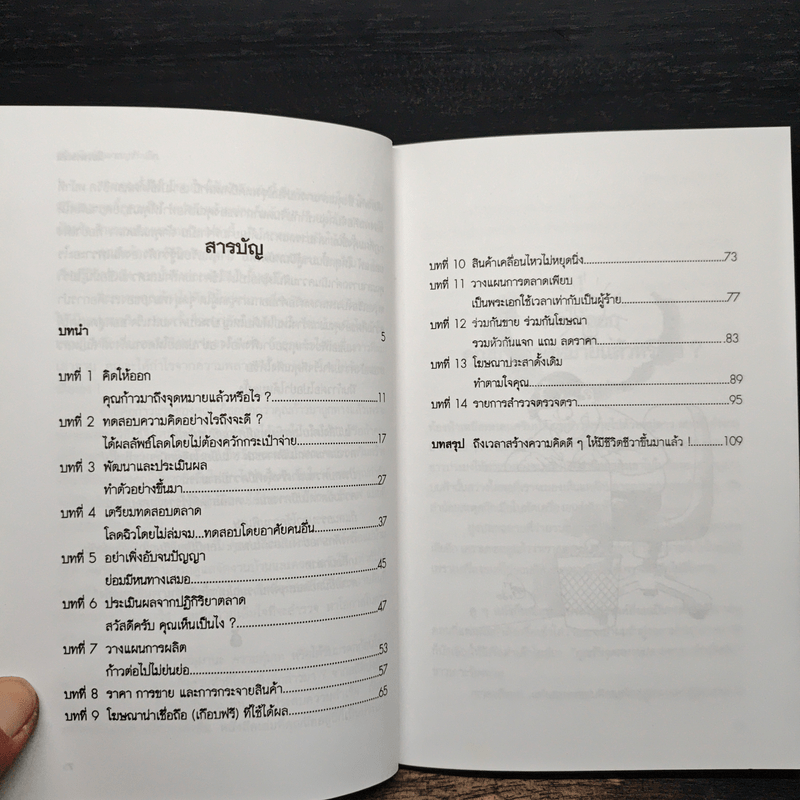 สารบัญ
บทนำ 5
บทที่ 1 คิดให้ออก
คุณก้าวมาถึงจุดหมายแล้วหรือไร ?........................11
บทที่ 2 ทดสอบความคิดอย่างไรถึงจะดี ?
ได้ผลลัพธ์โลดโดยไม่ต้องควักกระเป๋าจ่าย........................17
บทที่ 3 พัฒนาและประเมินผล
ทำตัวอย่างขึ้นมา........................27
บทที่ 4 เตรียมทดสอบตลาด
โลดฉิวโดยไม่ล่มจม...ทดสอบโดยอาศัยคนอื่น........................37
บทที่ 5 อย่าเพิ่งอับจนปัญญา
ย่อมมีหนทางเสมอ........................45
บทที่ 6 ประเมินผลจากปฏิกิริยาตลาด
สวัสดีครับ คุณเห็นเป็นไง ?........................47
บทที่ 7 วางแผนการผลิต 53
ก้าวต่อไปไม่ย่นย่อ........................57
บทที่ 8 ราคา การขาย และการกระจายสินค้า........................65
บทที่ 9 โฆษณาน่าเชื่อถือ (เกือบฟรี) ที่ใช้ได้ผล........................
บทที่ 10 สินค้าเคลื่อนไหวไม่หยุดนิ่ง........................73
บทที่ 11 วางแผนการตลาดเพียบ
เป็นพระเอกใช้เวลาเท่ากับเป็นผู้ร้าย........................77
บทที่ 12 ร่วมกันขาย ร่วมกันโฆษณา
รวมหัวกันแจก แถม ลดราคา........................83
บทที่ 13 โฆษณาประสาดั้งเดิม
ทำตามใจคุณ........................89
บทที่ 14 รายการสำรวจตรวจตรา........................95
บทสรุป ถึงเวลาสร้างความคิดดี ๆ ให้มีชีวิตชีวาขึ้นมาแล้ว !............109